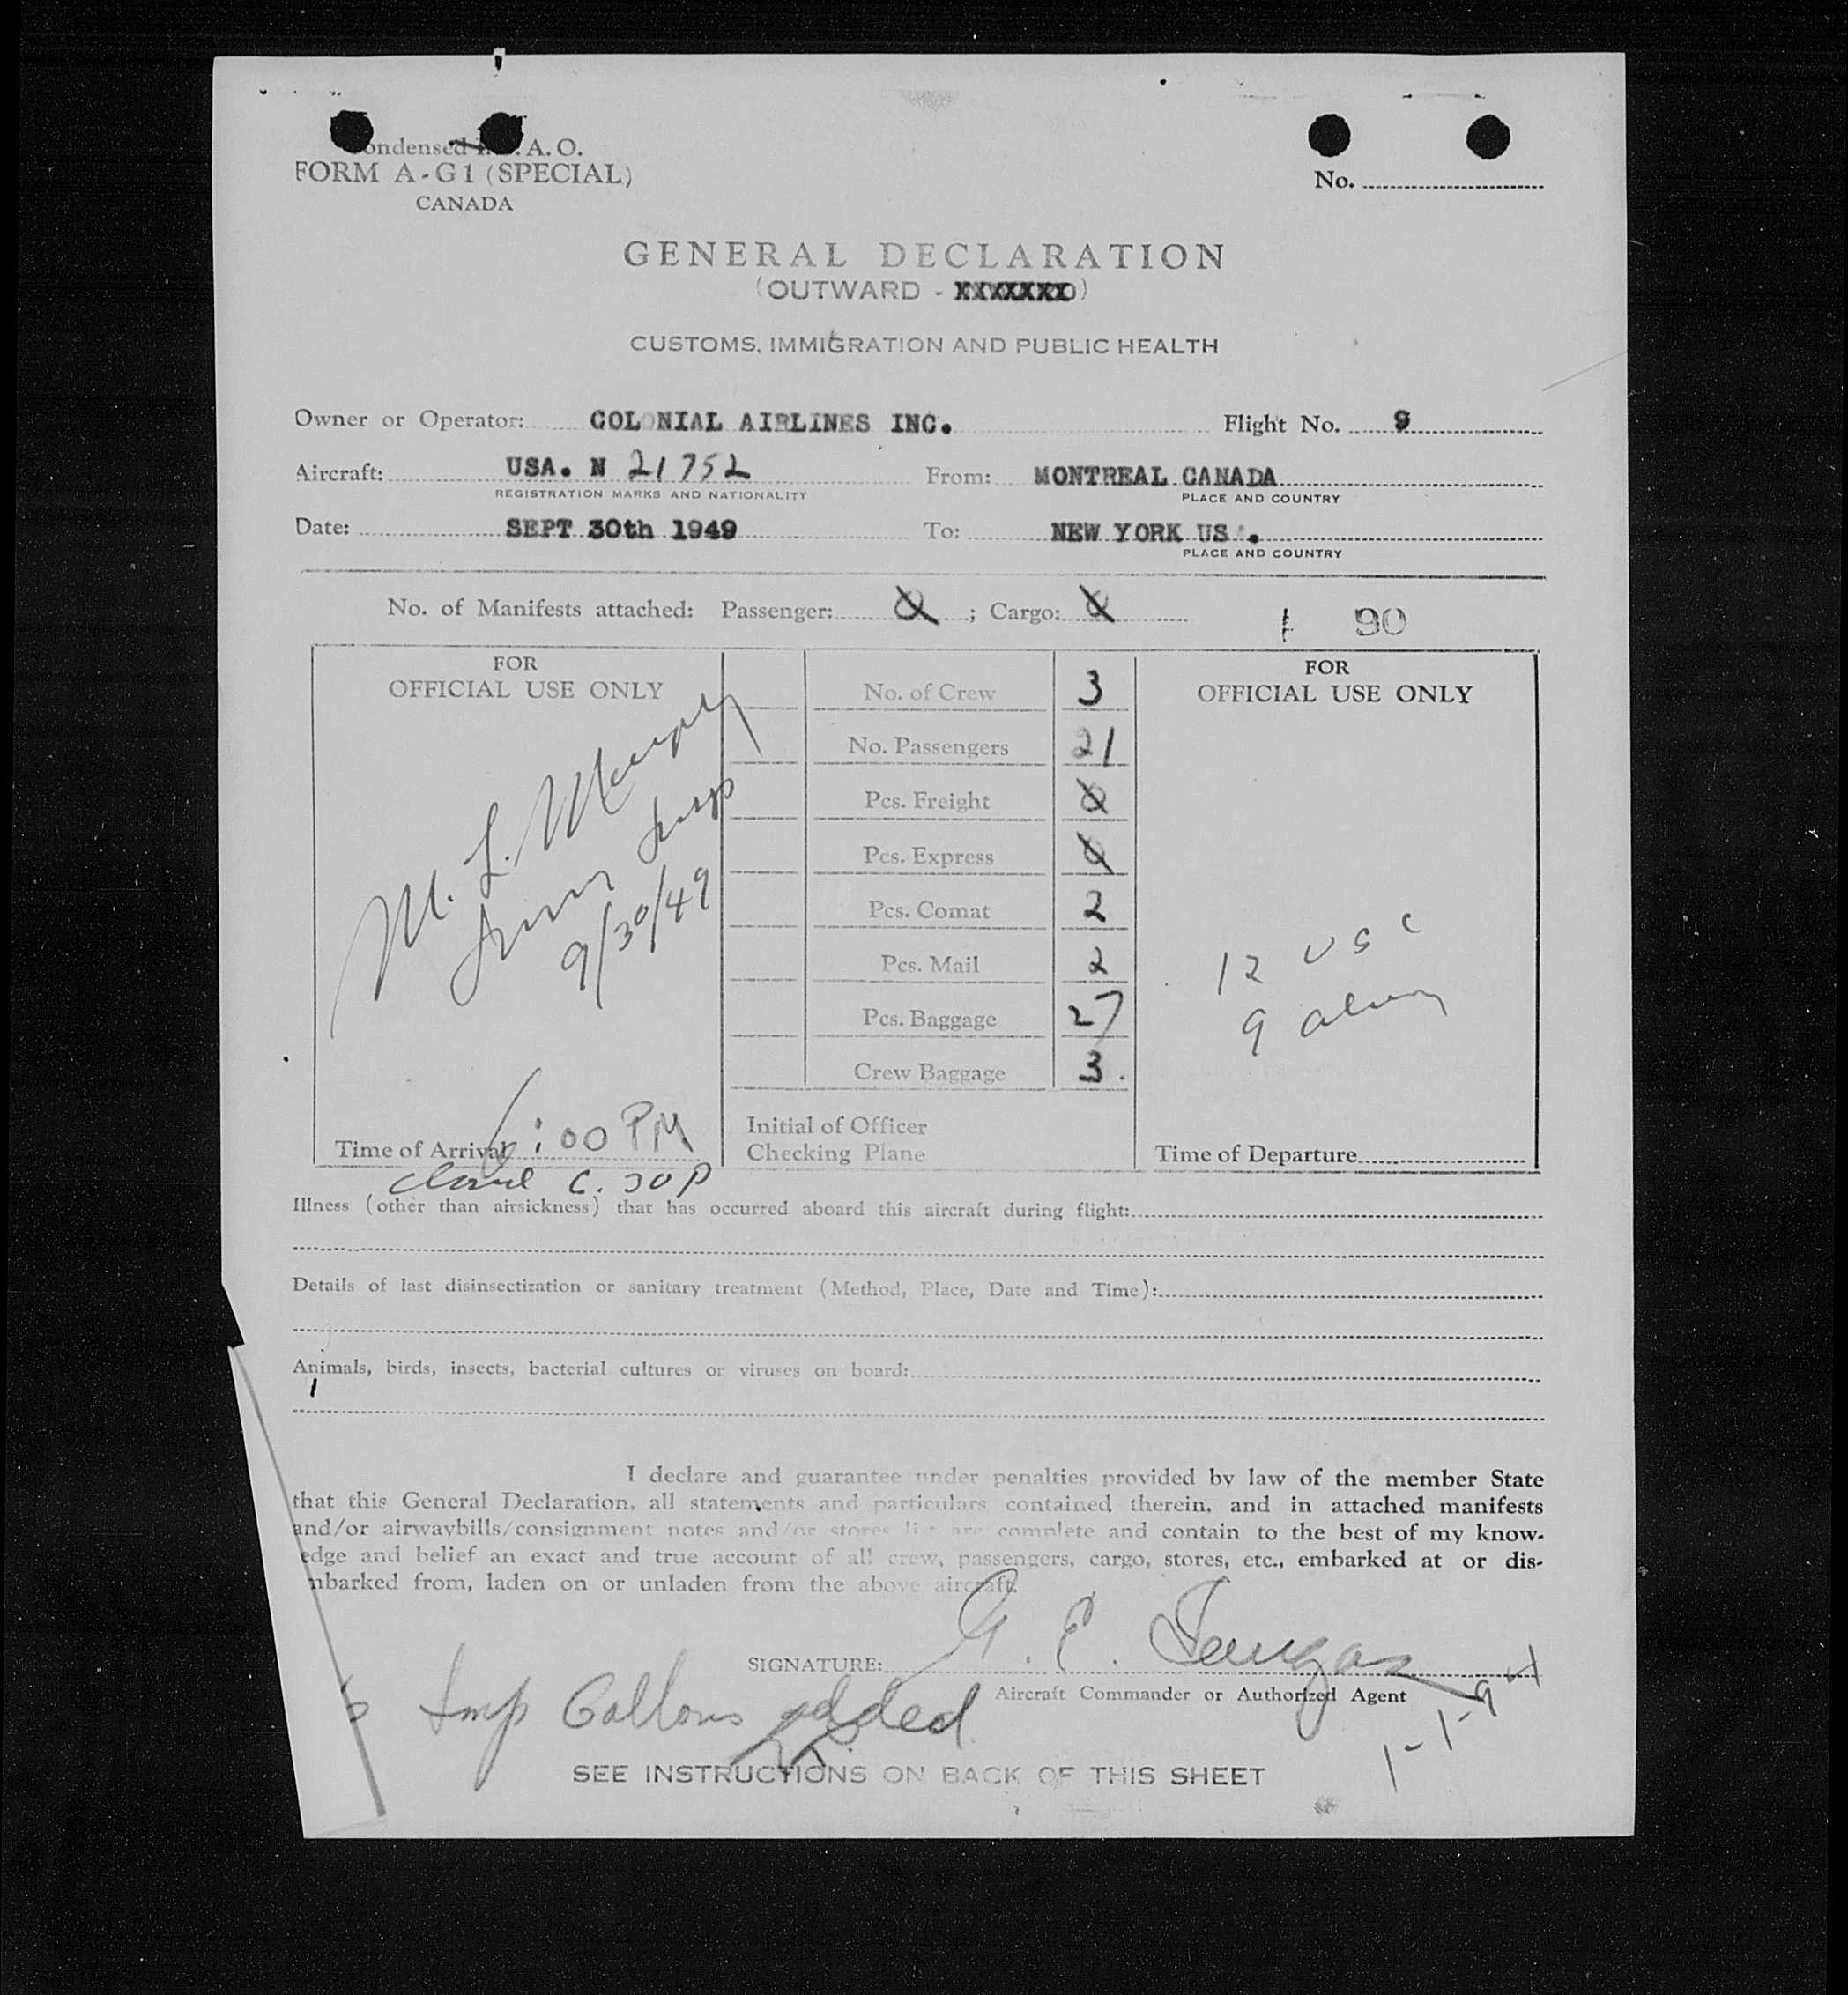 ondensed I. A. O.
FORM A-G1 (SPECIAL)
CANADA
No.
GENERAL DECLARATION
(OUTWARD - XXXXXXX)
CUSTOMS, IMMIGRATION AND PUBLIC HEALTH
Owner or Operator: COLONIAL AIRLINES INC. Flight No. 9
Aircraft: USA. N 21752 From: MONTREAL CANADA
REGISTRATION MARKS AND NATIONALITY PLACE AND COUNTRY
Date: SEPT 30th 1949 To: NEW YORK US .
PLACE AND COUNTRY
No. of Manifests attached: Passenger: 0 ; Cargo: 0
90
FOR
OFFICIAL USE ONLY
M. L. Murphy
Imm Insp
9/30/49
Time of Arrival 6:00 PM
6.30 P
No. of Crew 3
No. Passengers 21
Pcs. Freight 0
Pcs. Express 0
Pcs. Comat 2
Pcs. Mail 2
Pcs. Baggage 27
Crew Baggage 3.
Initial of Officer
Checking Plane
FOR
OFFICIAL USE ONLY
12 USC
9 alien
Time of Departure
Illness (other than airsickness) that has occurred aboard this aircraft during flight:
Details of last disinsectization or sanitary treatment (Method, Place, Date and Time):
Animals, birds, insects, bacterial cultures or viruses on board:
I declare and guarantee under penalties provided by law of the member State
that this General Declaration, all statements and particulars contained therein, and in attached manifests
and/or airwaybills/consignment notes and/or stores list are complete and contain to the best of my know-
edge and belief an exact and true account of all crew, passengers, cargo, stores, etc., embarked at or dis-
mbarked from, laden on or unladen from the above aircraft.
SIGNATURE: G. E.
Aircraft Commander or Authorized Agent
Imp Gallons added
SEE INSTRUCTIONS ON BACK OF THIS SHEET